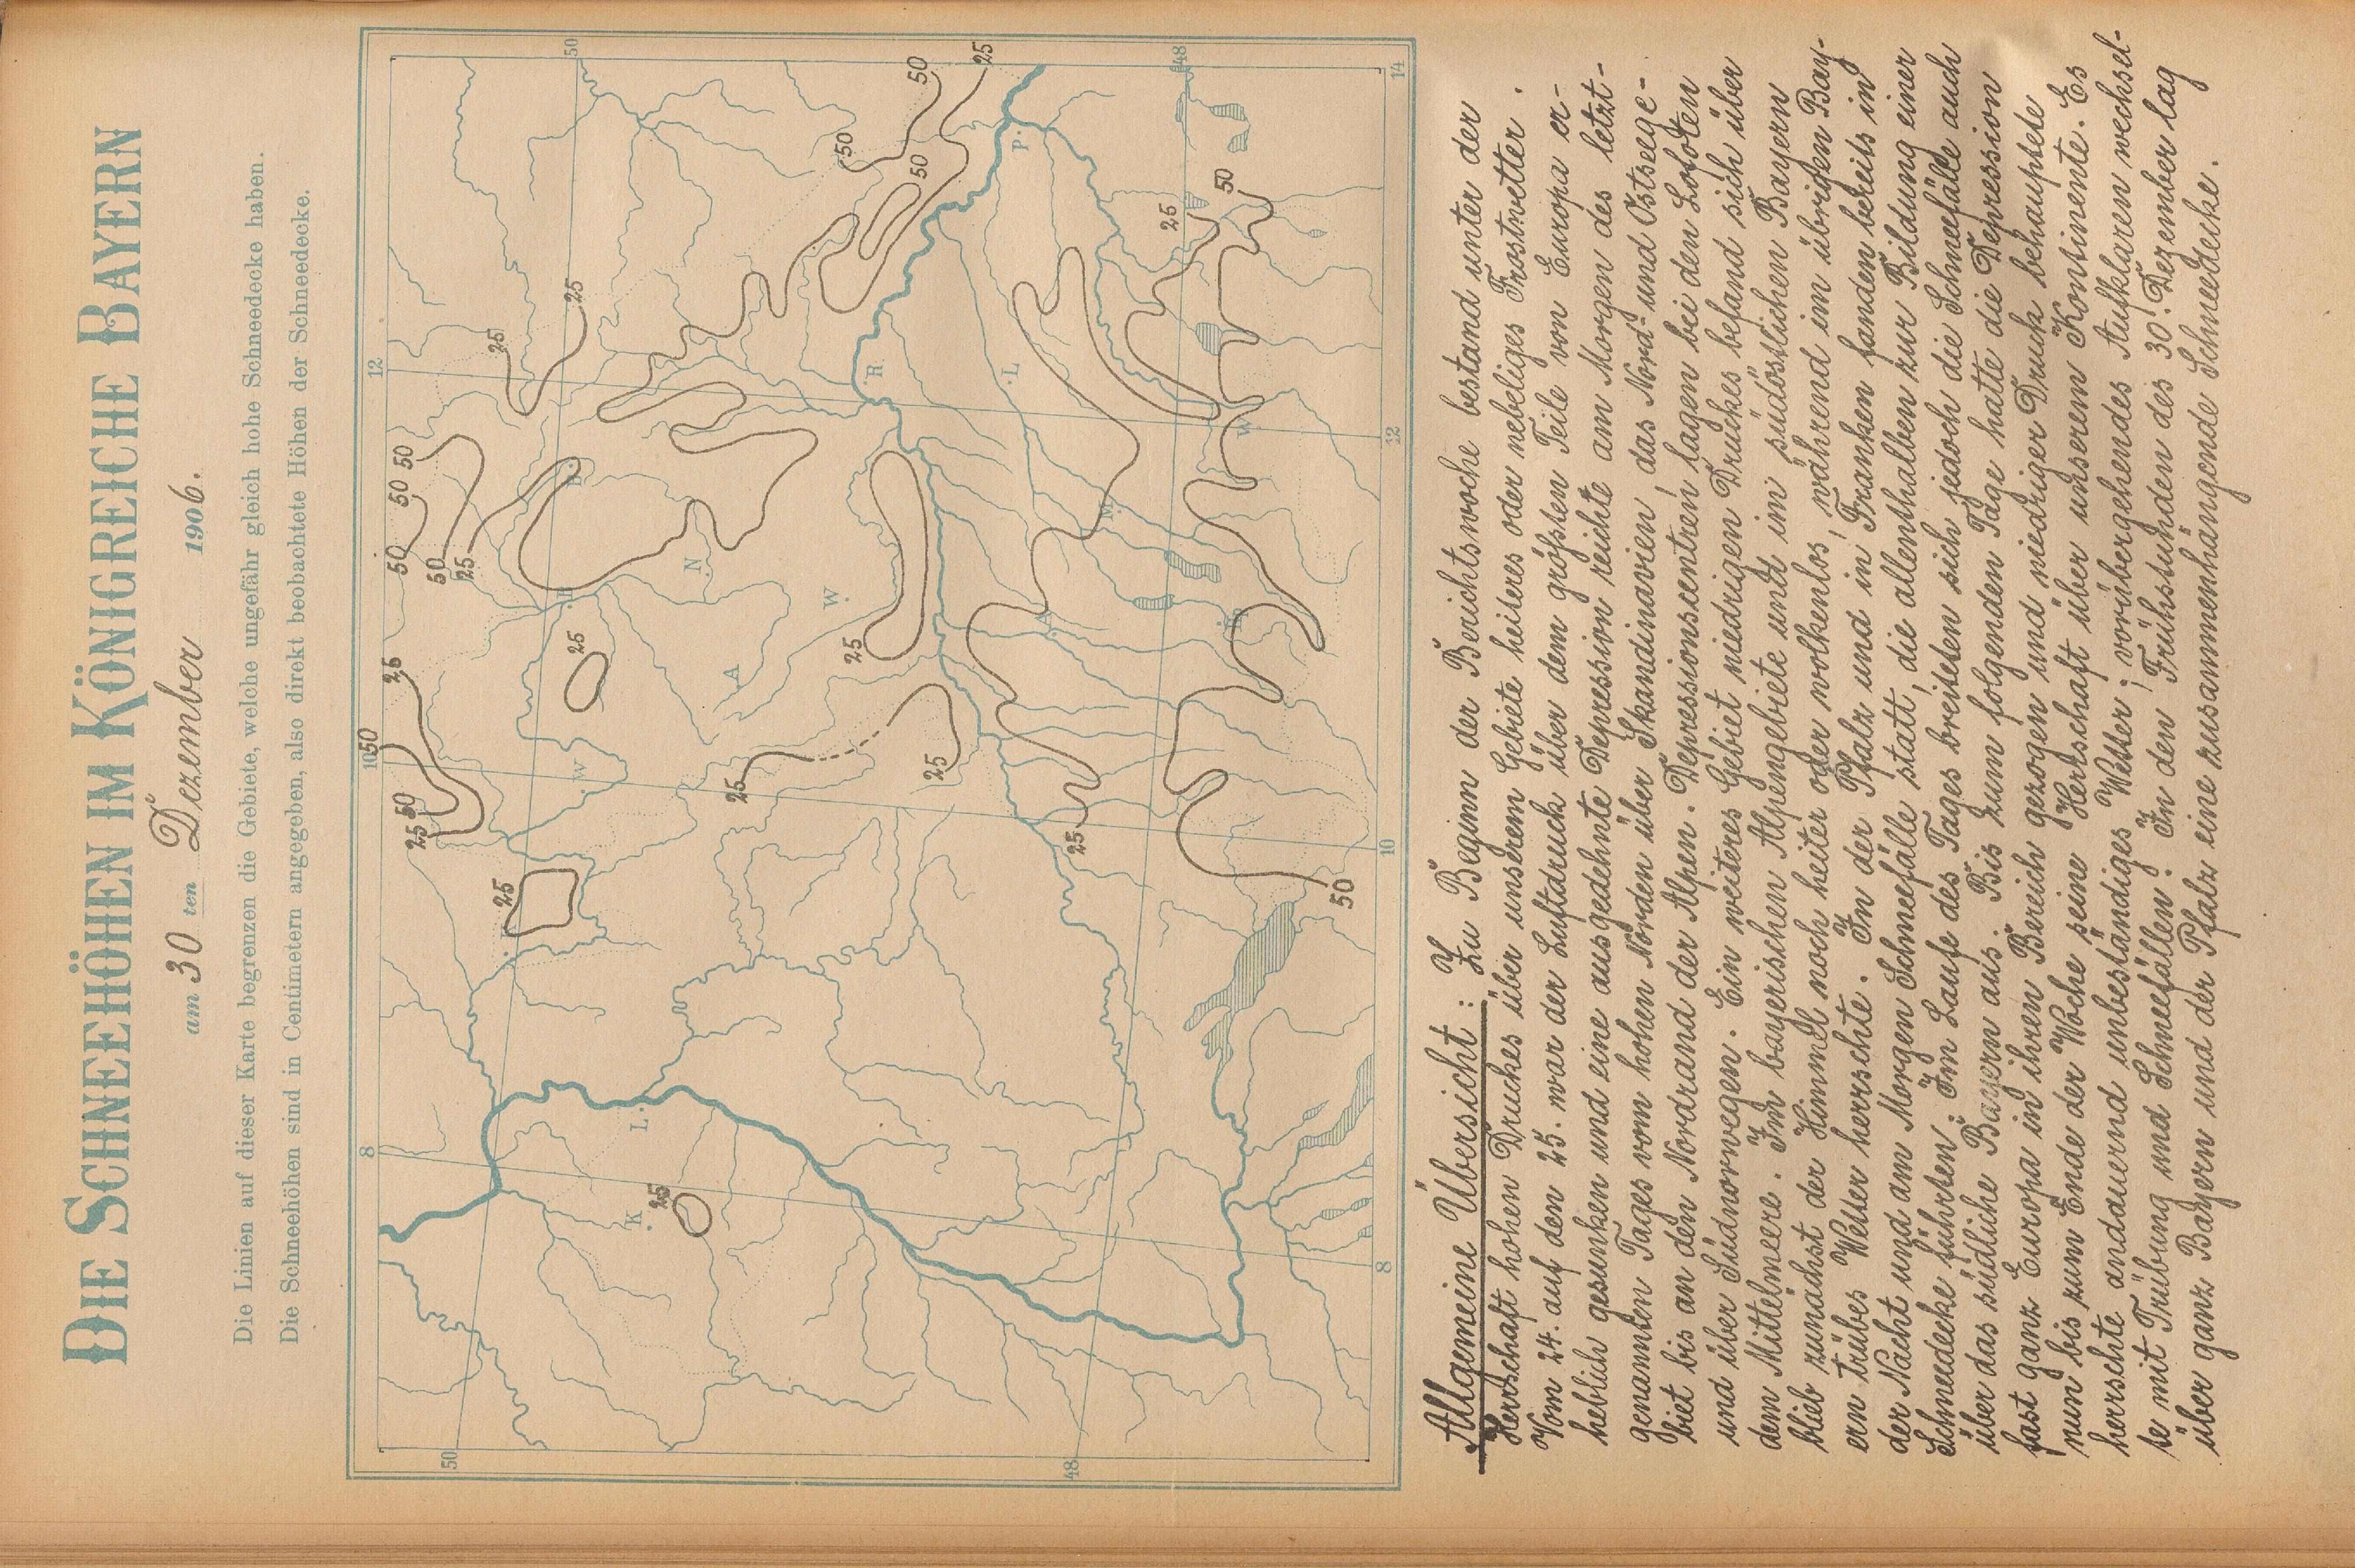 DIE SCHNEEHÖHEN IM KÖNIGREICHE BAYERN
am 30ten Dezember 1906.
Die Linien auf dieser Karte begrenzen die Gebiete, welche ungefähr gleich hohe Schneedecke haben.
Die Schneehöhen sind in Centimetern angegeben, also direkt beobachtete Höhen der Schneedecke.
8
10
50
12
50
25
50
25
50
50
50
50
25
25
25
50
25
50
50
50
25
25
25
25
25
25
25
25
50
50
48
48
8
10
12
14
K
L
W
B
B
N
A
W
R
L
P
A
M
K
W
Allgemeine Übersicht: Zu Beginn der Berichtswoche bestand unter der
Herrschaft hohen Druckes über unserem Gebiete heiteres oder nebeliges Frostwetter.
Vom 24. auf den 25. war der Luftdruck über dem größten Teile von Europa er-
heblich gesunken und eine ausgedehnte Depression reichte am Morgen des letzt-
genannten Tages vom hohen Norden über Skandinavien, das Nord- und Ostseege-
biet bis an den Nordrand der Alpen. Depressionscentren lagen bei den Lofoten
und über Südnorwegen. Ein weiteres Gebiet niedrigen Druckes befand sich über
dem Mittelmeere. Im bayerischen Alpengebiete und im südöstlichen Bayern
blieb zunächst der Himmel noch heiter oder wolkenlos, während im übrigen Bay-
ern trübes Wetter herrschte. In der Pfalz und in Franken fanden bereits in
der Nacht und am Morgen Schneefälle statt, die allenthalben zur Bildung einer
Schneedecke führten. Im Laufe des Tages breiteten sich jedoch die Schneefälle auch
über das südliche Bayern aus. Bis zum folgenden Tage hatte die Depression
fast ganz Europa in ihren Bereich gezogen und niedriger Druck behauptete
nun bis zum Ende der Woche seine Herrschaft über unserem Kontinente. Es
herrschte andauernd unbeständiges Wetter; vorübergehendes Aufklaren wechsel-
te mit Trübung und Schneefällen. In den Frühstunden des 30. Dezember lag
über ganz Bayern und der Pfalz eine zusammenhängende Schneedecke.